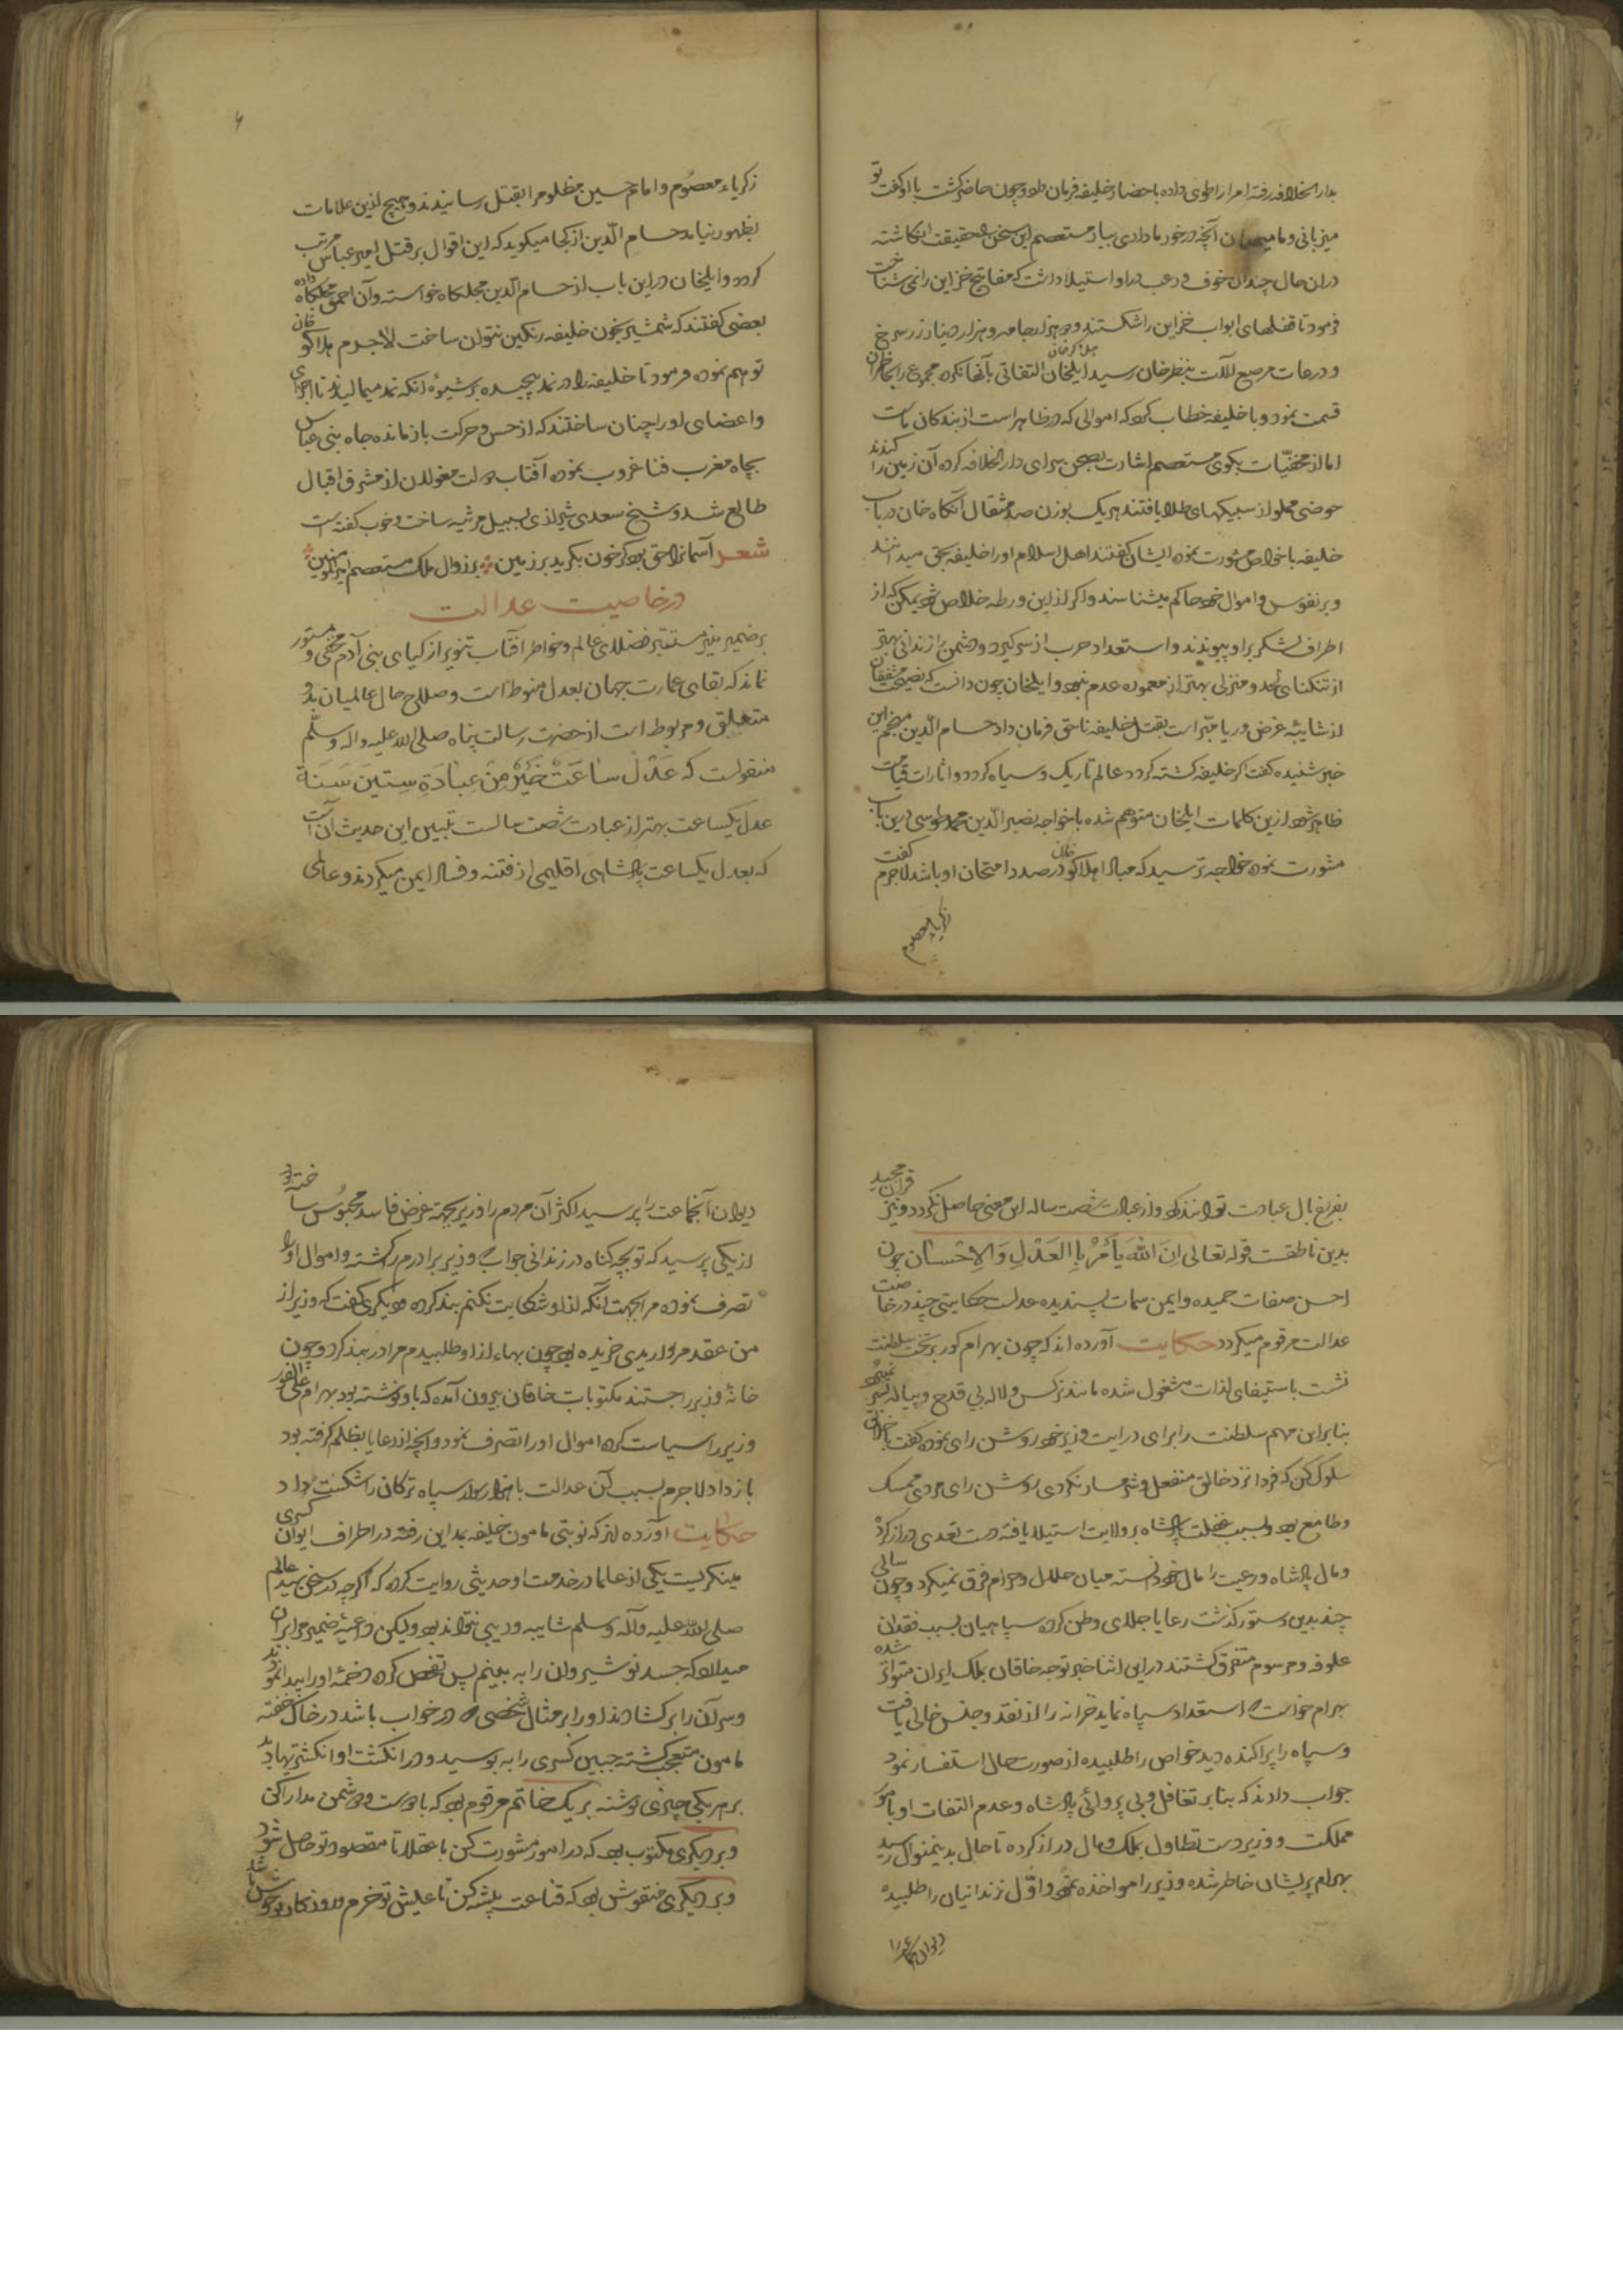 بدار الخلافه رفته امرا را طوی داده باحضار خلیفه فرمان داد و چون حاضر گشت با او گفت تو
میزبانی و ما میهمان آنچه در خور ما داری بیار مستعصم این سخن را حقیقت انگاشته
دران حال چندان خوف و رعب در او استیلا داشت که مفاتیح خزاین را نمی شناخت
فرمود تا قفلهای ابواب خزاین را شکستند و دو هزار جامه و هزار دینار زر سرخ
و درعات مرصع آلات بنظر خان رسید ایلخان هلاکو خان التفاتی بآنها نکرده مجموع را بحاضران
قسمت نمود و با خلیفه خطاب کرد که اموالی که در ظاهر است از بندکان ماست
اما از مخفیّات بکوی مستعصم اشارت بصحن سرای دار الخلافه کرده آن زمین را کندند
حوضی مملو از سبیکهای طلا یافتند هر یک بوزن صد مثقال آنگاه خان در باب
خلیفه با خواص مشورت نموده ایشان گفتند اهل اسلام او را خلیفه بحق میدانند
و بر نفوس و اموال خود حاکم میشناسند و اگر ازین ورطه خلاص شود یمکن که از
اطراف لشکر بر او پیوندند و استعداد حرب از سر گیرد و دشمن را زندانی بهتر
از تنکنای لحد و منزلی بهتر از معموره عدم نبود و ایلخان چون دانست که نصیحت مشفقان
از شایبهٔ غرض و ریا مبّرا است بقتل خلیفه ناحق فرمان داد حسام الدّین منجم این
خبر شنیده گفت اگر خلیفه کشته گردد عالم تاریک و سیاه گردد و اثارات قیامت
ظاهر شود ازین کلمات ایلخان متوهم شده با خواجه نصیر الدّین محمد طوسی درین باب
مشورت نموده خواجه ترسید که مبادا هلاکو خان در صدد امتحان او باشد لاجرم گفت
زکریا معصوم
زکریاء معصُوم و امام حسین مظلوم را بقتل رسانیدند و هیچ ازین علامات
بظهور نیامد حسام الدّین از کجا میگوید که این اقوال بر قتل امیر عباس مرتب
گردد و ایلخان دراین باب از حسام الّدین مچلکاه خواسته و آن احمق مچلکاه داده
بعضی گفتند که شمشیر بخون خلیفه رنگین نتوان ساخت لاجرم هلاکو خان
توهم نموده فرمود تا خلیفه را در نمد پیچیده بر شیوهٔ آنکه نمد میمالیدند تا اجزای
و اعضای او را چنان ساختند که از حس و حرکت باز مانده جاه بنی عباس
بچاه مغرب فنا غروب نموده آفتاب دولت مغولان از مشرق اقبال
طالع شد و شیخ سعدی شیرازی بسبیل مرثیه ساخت و خوب گفته است
شعر آسمانرا حق بود گر خون بگرید بر زمین بر زوال ملک مستعصم امیر المومنین
در خاصیت عدالت
بر ضمیر منیر مستنیر فضلای عالم و خواطر افتاب تنویر ازکیای بنی آدم مخفی و مستور
نماند که بقای عمارت جهان بعدل منوط است و صلاح حال عالمیان بدو
متعلق و مربوط است از حضرت رسالت پناه صلی الله علیه و اله و سلّم
منقولست که عَدْلُ ساعَتْ خَیْرٌ مِنْ عِبادَةِ سِتینَ سَنَة
عدل یکساعت بهتر از عبادت شصت سالست تبیین این حدیث آن است
که بعدل یکساعت پادشاهی اقلیمی از فتنه و فساد ایمن میگردند و عالمی
بفراغ بال عبادت توانند کرد و از عبادت شصت ساله این معنی حاصل نکردد و نیز قران مجید
بدین ناطقست قوله تعالی اِنَ اللهَ یَأمُرْ بِا العَدْلِ وَ الاِحْسان چون
احسن صفات حمیده و ایمن سمات پسندیده عدلست حکایتی چند در خاصّیت
عدالت مرقوم میگردد حکایت آورده اند که چون بهرام گور بر تخت سلطنت
نشست باستیفای لذات مشغول شده مانند نرکس و لاله بی قدح و پیاله بسر نمیبرد
بنا براین مهم سلطنت را برای درایت وزیر خود روشن رای نموده گفت با خلایق
سلوک کن که فردا نزد خالق منفعل و شرمسار نگردی روشن رای مردی ممسک
و طامع بود و بسبب غفلت پادشاه بر ولایت استیلا یافته دست تعدی دراز کرد
و مال پادشاه و رعیت را مال خود دانسته میان حلال و حرام فرق نمیکرد و چون سالی
چند بدین دستور گذشت رعایا جلای وطن کرده سپاهیان بسبب فقدان
علوفه و مرسوم متفرق گشتند دراین اثنا خبر توجه خاقان بملک ایران متواتر شده
بهرام خواست که استعداد سپاه نماید خزانه را از نقد و جنس خالی یافت
و سپاه را پراکنده دید خواص را طلبیده از صورت حال استفسار نمود
جواب دادند که بنا بر تغافل و بی پروائی پادشاه و عدم التفات او بامور
مملکت و وزیر دست تطاول بملک و مال دراز کرده تا حال بدینمنوال رسید
بهرام پریشان خاطر شده وزیر را مواخذه نمود و اوّل زندانیان را طلبیده
دیوان
دیوان آنجماعت را پرسید اکثر آن مردم را وزیر بجهة غرض فاسد محبُوس ساخته بود
از یکی پرسید که تو بچه گناه در زندانی جواب داد وزیر برادرم را کشته و اموال او را
تصرف نموده مرا بجهت آنکه ازو شکایت نکنم بند کرده دیگری گفت که وزیر از
من عقد مرواریدی خریده بود چون بهاء ازو طلبیدم مرا در بند کرد و چون
خانهٔ وزیر را جستند مکتوبات خاقان بیرون آمده که باو نوشته بود بهرام علی الفور
وزیر را سیاست کرده اموال او را تصرف نمود و آنچه از رعایا بظلم گرفته بود
باز داد لاجرم بسبب آن عدالت با هزار سوار سپاه ترکان را شکست داد
حکایت آورده اند که نوبتی مامون خلیفه بمداین رفته در اطراف ایوان کسری
مینگریست یکی از علما در خدمت او حدیثی روایت کرد که اگر چه در سخن سید عالم
صلی الله علیه و آله و سلم شایبه و ریبی نتواند بود ولیکن داعیهٔ ضمیر مرا بران
میدارد که جسد نوشیروان را به بینم پس تفحص کرده دخمهٔ او را پیدا نمودند
و سر آن را برگشادند او را بر مثال شخصی که در خواب باشد در خاک خفته
مامون متعجب گشته جبین کسری را به بوسید و در انگشت او انگشتریها دید
بر هر یکی چیزی نوشته بر یک خاتم مرقوم بود که با دوست و دشمن مدارا کن
و بر دیگری مکتوب بود که در امور مشورت کن با عقلا تا مقصود تو حاصل شود
و بر دیگری منقوش بود که قناعت پیشه کن تا عیش تو خرم و روزگار تو خوش باشد